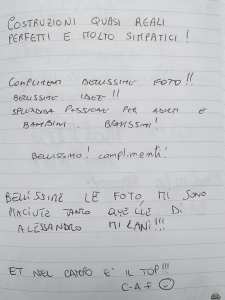 COSTRUZIONI QUASI REALI
PERFETTI E MOLTO SIMPATICI!
COMPLIMENTI BELLISSIME FOTO!!
BELLISSIME IDEE!!
SPLENDIDA PASSIONE PER ADULTI E
BAMBINI. BRAVISSIMI!
BELLISSIMO! complimenti!
BELLISSIME LE FOTO MI SONO
PIACIUTE TANTO QUELLE DI
ALESSANDRO MILANI!!!
ET NEL CAMPO E' IL TOP!!!
C-A f